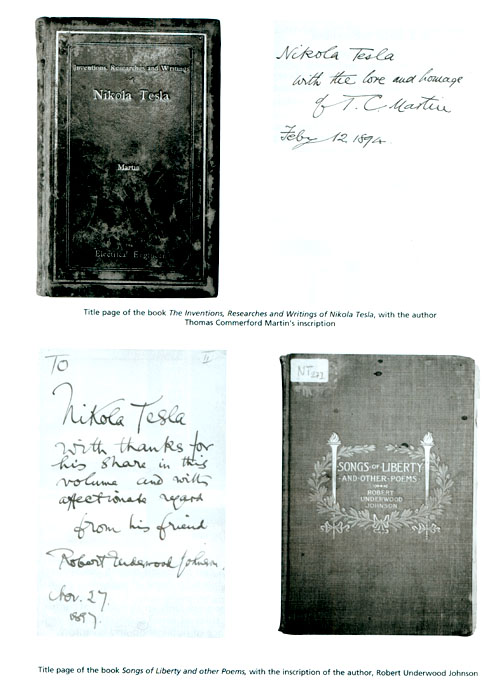 Inventions, Researches and Writings
Nikola Tesla
Martin
Electrical Engineer
Nikola Tesla
with the love and homage
of T. C. Martin
Feby 12. 1894
Title page of the book The Inventions, Researches and Writings of Nikola Tesla, with the author
Thomas Commerford Martin's inscription
To
Nikola Tesla
with thanks for
his share in this
volume and with
affectionate regard
from his friend
Robert Underwood Johnson.
Nov. 27.
1897.
NT
SONGS OF LIBERTY
AND OTHER POEMS
ROBERT
UNDERWOOD
JOHNSON
Title page of the book Songs of Liberty and other Poems, with the inscription of the author, Robert Underwood Johnson